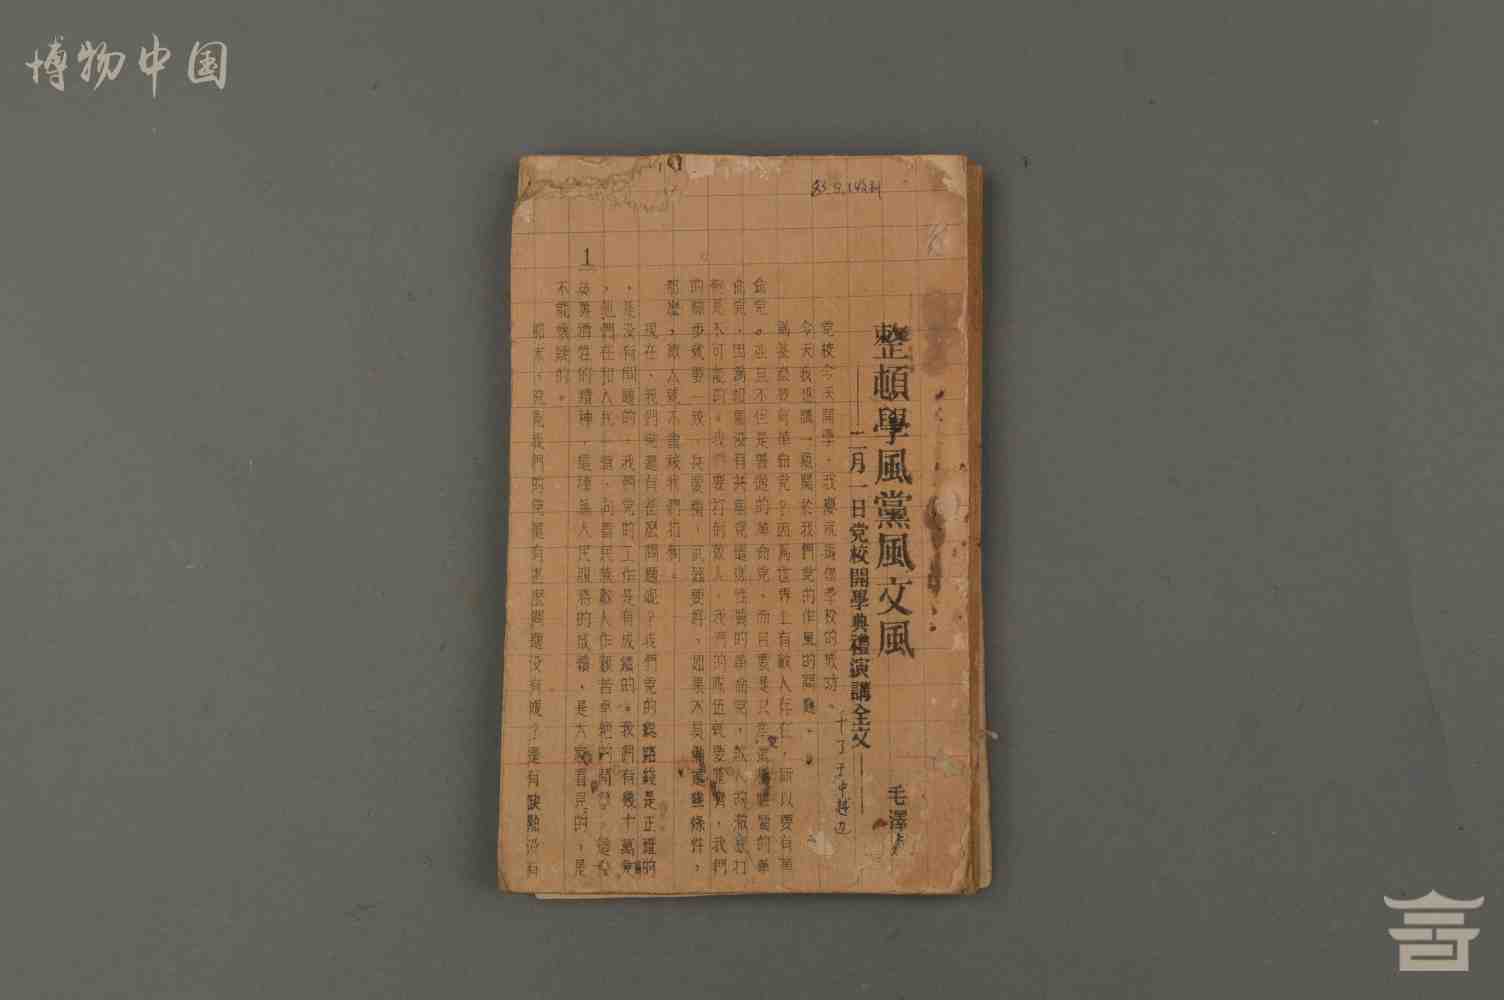 博物中国
整頓學風黨風文風
——二月一日党校開學典禮演講全文——
毛澤
党校今天開學，我慶祝這個學校的成功。
今天我想講一點關於我們党的作風的問題。
為甚麼要有革命党？因為世界上有敵人存在，所以要有革
命党。並且不但是普通的革命党，而且要是共產党性質的革
命党，因為如果沒有共產党這樣性質的革命党，敵人的徹底打
倒是不可能的。我們要打倒敵人，我們的隊伍就要整齊，我們
的腳步就要一致，兵要精，武器要好，如果不具備這些條件，
那麼，敵人就不會被我們打倒。
現在，我們党還有甚麼問題呢？我們党的總路綫是正確的
，是沒有問題的，我們党的工作是有成績的。我們有幾十萬党
，他們在和人民一道，向着民族敵人作艱苦卓絕的鬥爭，這
英勇犧牲的精神，這種為人民服務的成績，是大家看見的，是
不能懷疑的。
那末，究竟我們的党還有甚麼問題沒有呢？還有缺點沒有
1